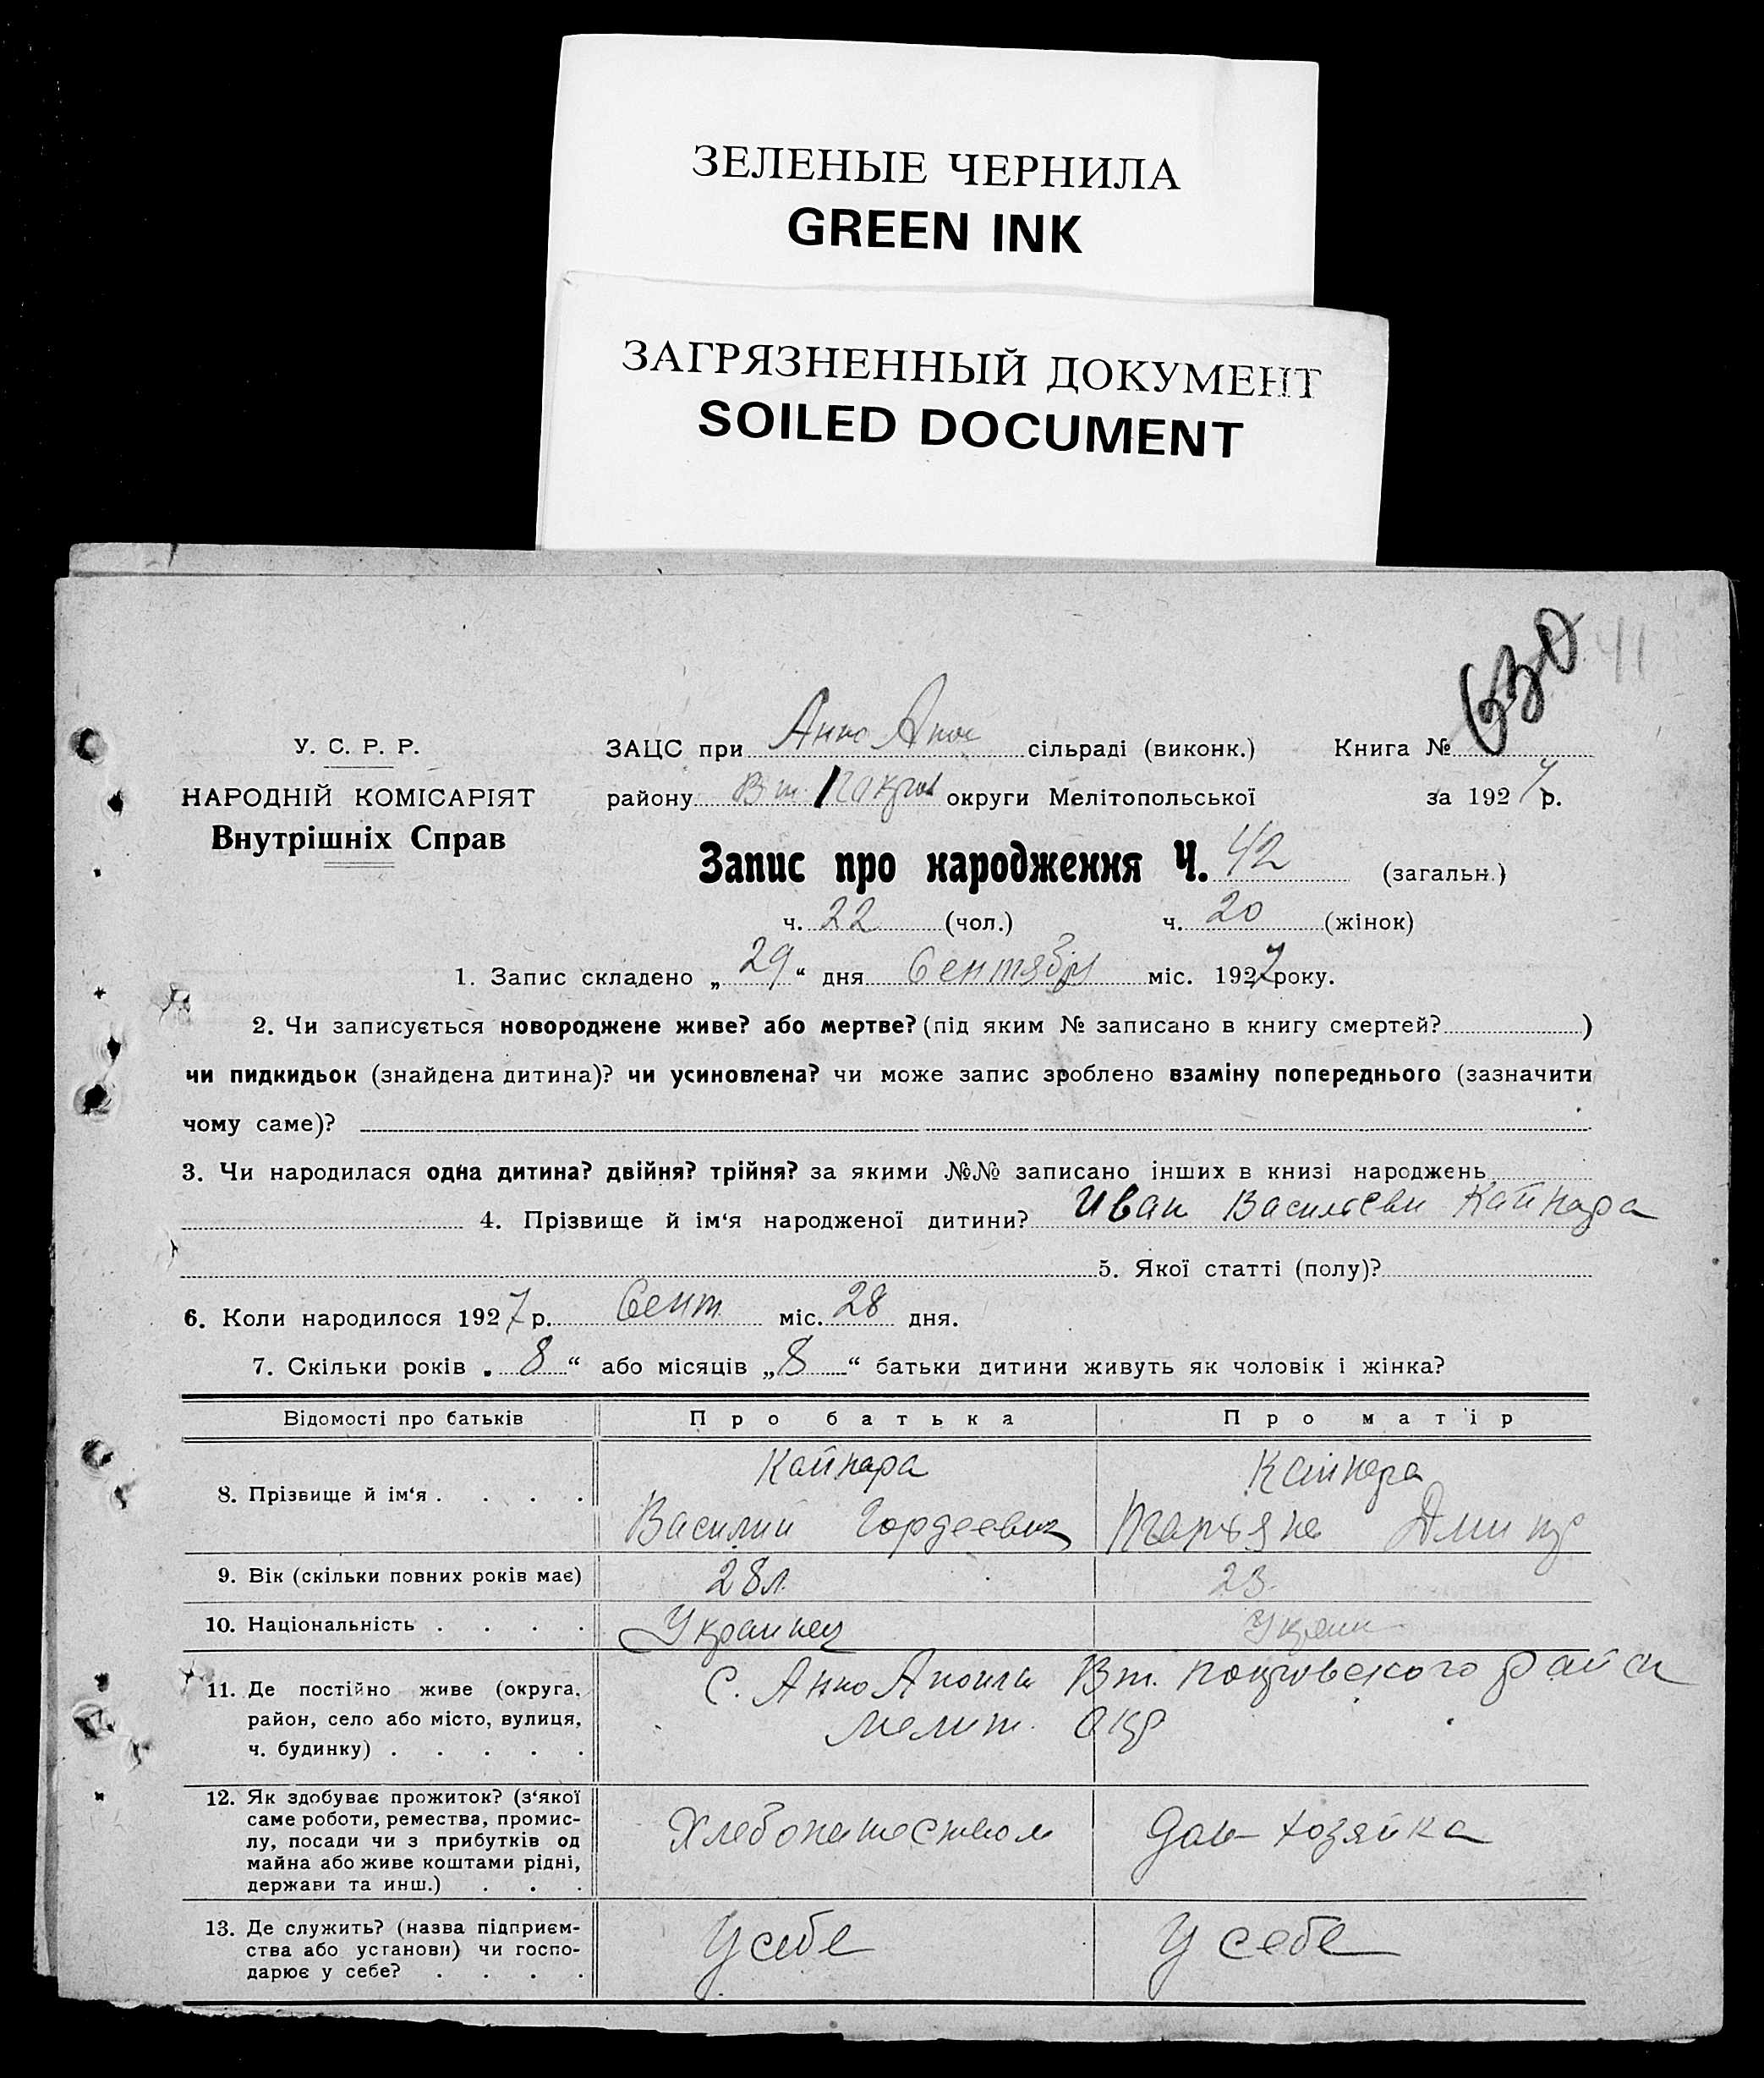 ЗЕЛЕНЫЕ ЧЕРНИЛА
GREEN INK
ЗАГРЯЗНЕННЫЙ ДОКУМЕНТ
SOILED DOCUMENT
630 41
У. С. Р. Р.
НАРОДНІЙ КОМІСАРІЯТ
Внутрішніх Справ
ЗАЦС при Анно Апок сільраді (виконк.) Книга №
району Вт. Покров округи Мелітопольської за 1927 р.
Запис про народження Ч. 42 (загальн.)
ч. 22 (чол.) ч. 20 (жінок)
1. Запис складено „29“ дня Сентября міс. 1927 року.
2. Чи записується новороджене живе? або мертве? (під яким № записано в книгу смертей? )
чи пидкидьок (знайдена дитина)? чи усиновлена? чи може запис зроблено взаміну попереднього (зазначити
чому саме)?
3. Чи народилася одна дитина? двійня? трійня? за якими №№ записано інших в книзі народжень
4. Прізвище й ім‘я народженої дитини? Иван Васильеви Кайнара
5. Якої статті (полу)?
6. Коли народилося 1927 р. Сент міс. 28 дня.
7. Скільки років „8“ або місяців „8“ батьки дитини живуть як чоловік і жінка?
Відомості про батьків Про батька Про матір
8. Прізвище й ім‘я . . . . Кайнара Кайнара
Василий Гордеевич Дмитр
9. Вік (скільки повних років має) 28л. 23
10. Національність . . . . Украинец Украин
11. Де постійно живе (округа,
район, село або місто, вулиця,
ч. будинку) . . . . .
С. Анно Вт. Покровского район
мелит. окр
12. Як здобуває прожиток? (з‘якої
саме роботи, ремества, промис-
лу, посади чи з прибутків од
майна або живе коштами рідні,
держави та инш.) . . .
Хлебопашеством дом хозяйка
13. Де служить? (назва підприєм-
ства або установи) чи госпо-
дарює у себе? . . . .
У себе У себе